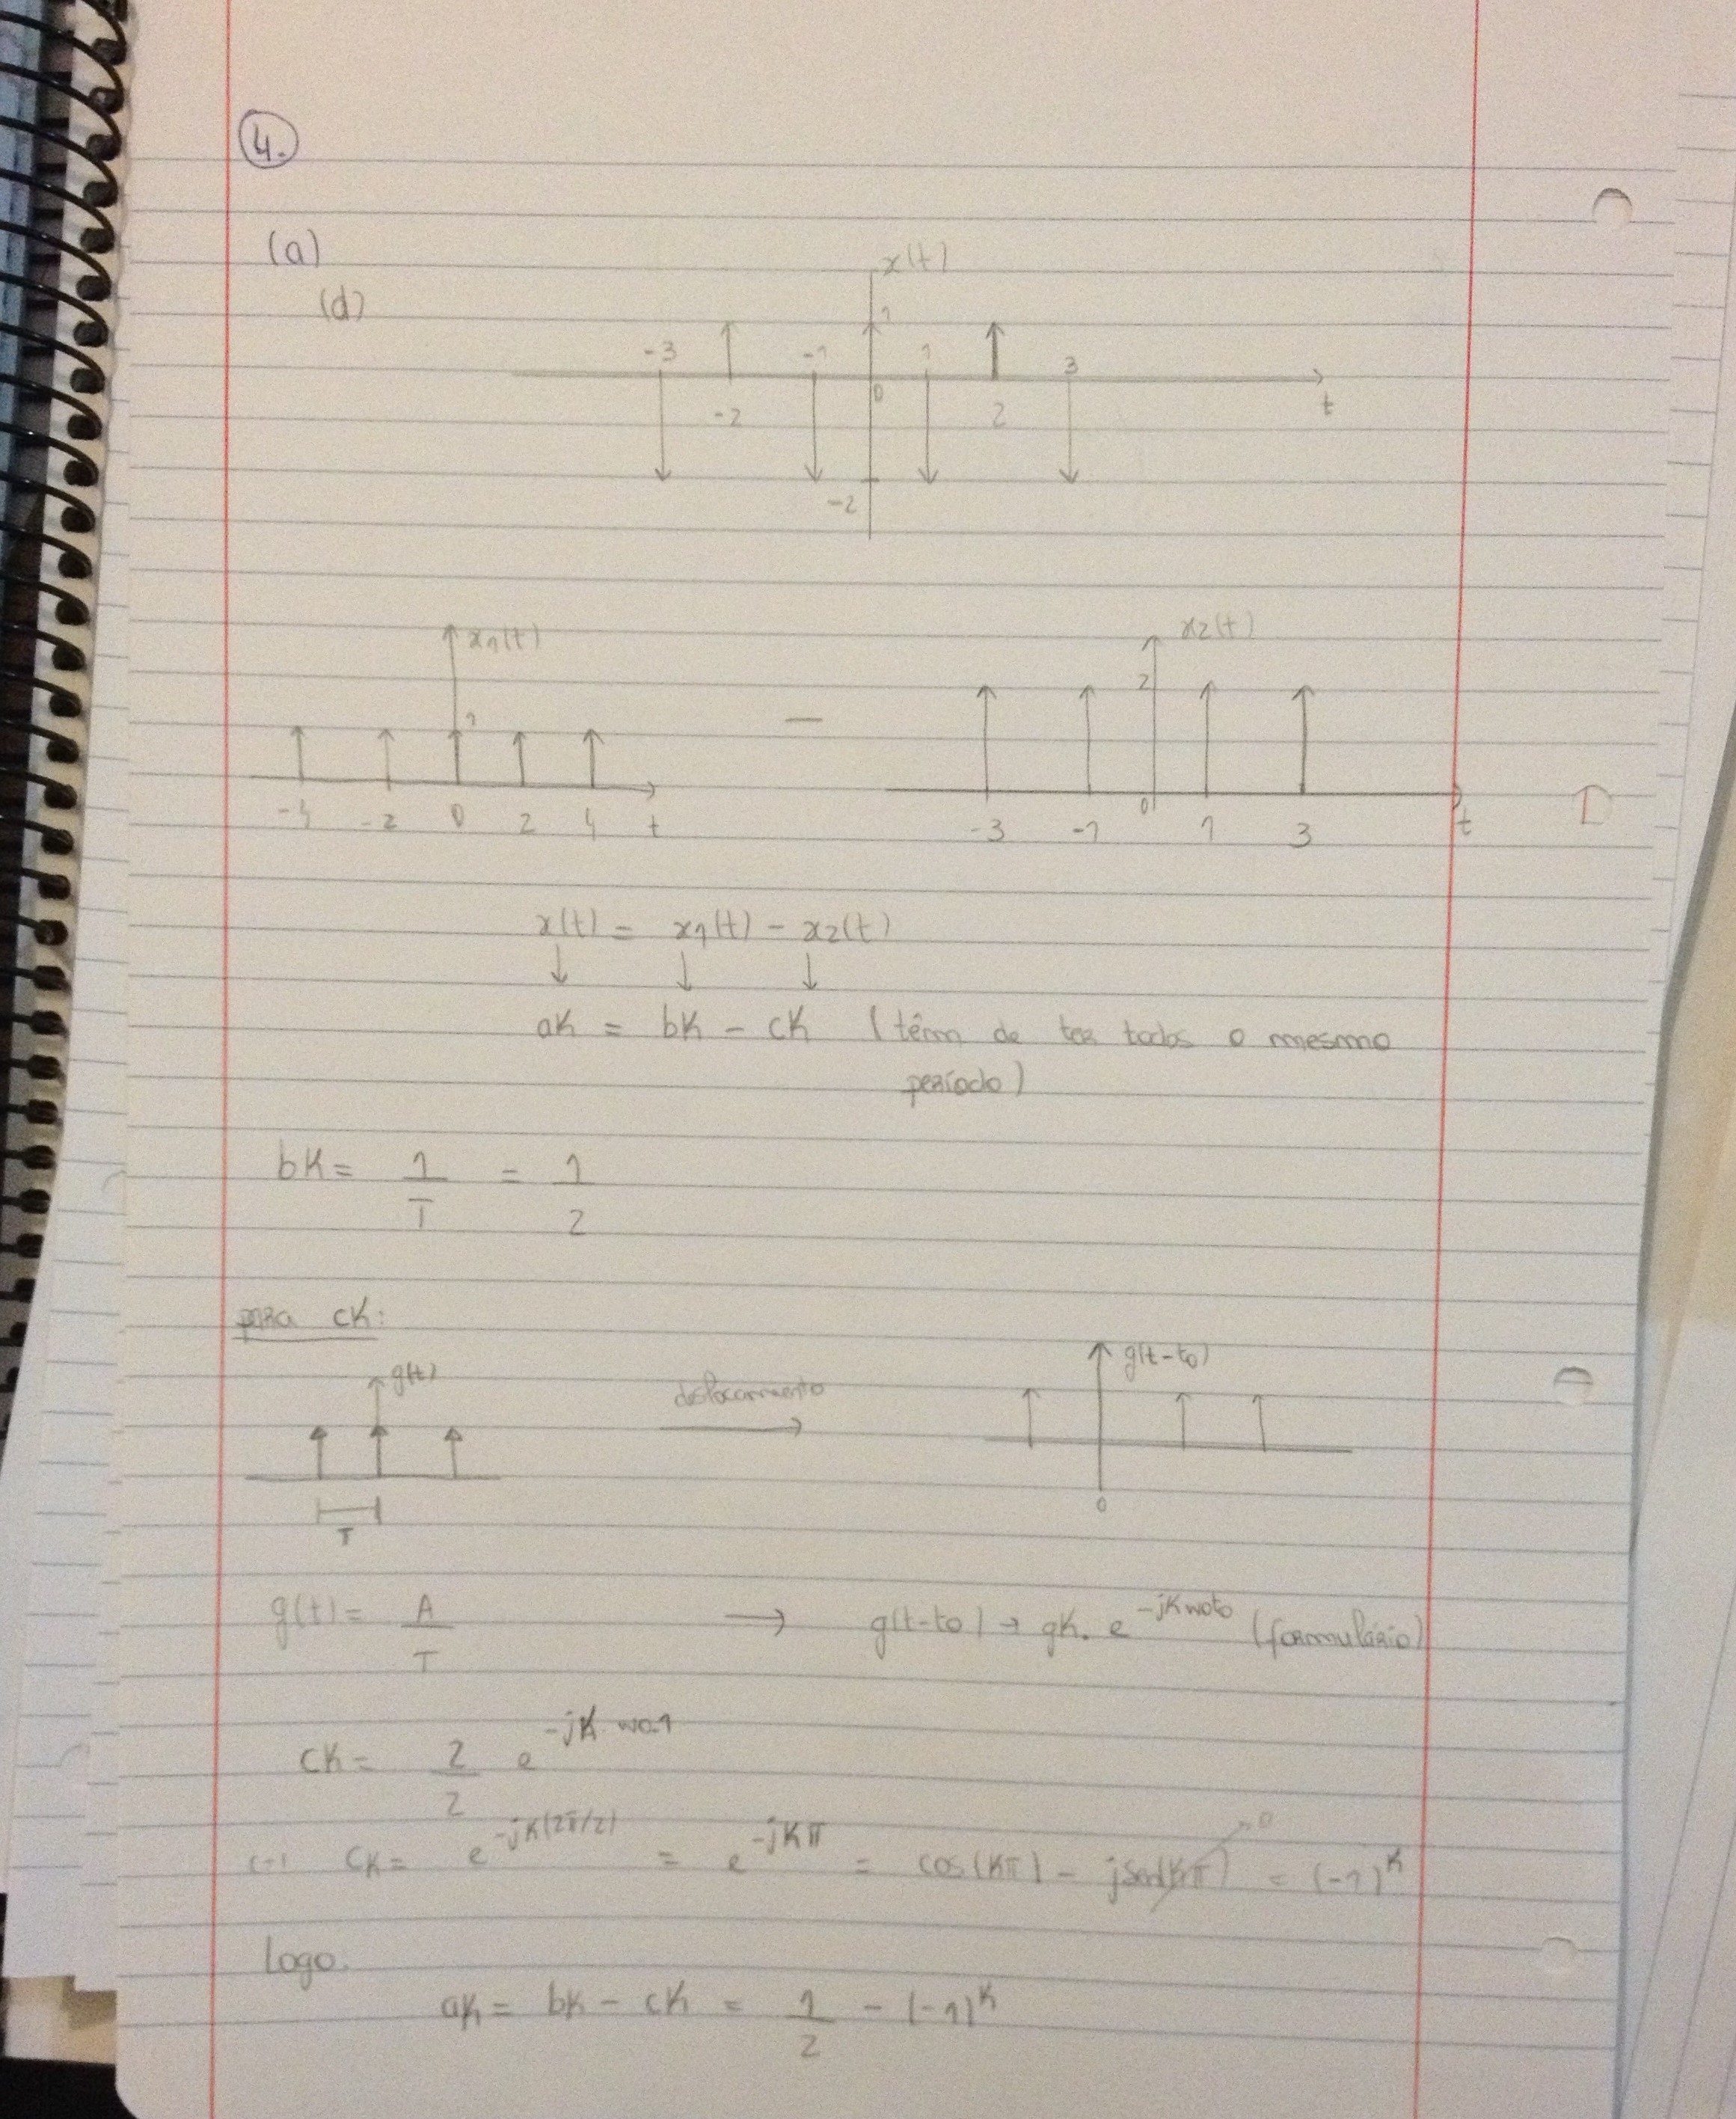 4.
(a)
(d)
x(t)
1
-3 -1 1 3
0
-2 2 t
-2
x1(t) x2(t)
2
1 —
-4 -2 0 2 4 t
0
-3 -1 1 3 t
x(t) = x1(t) - x2(t)
↓ ↓ ↓
aK = bK - cK (têm de ter todos o mesmo
período)
bK = 1/T = 1/2
para cK:
g(t) deslocamento → g(t-to)
T 0
g(t) = A/T → g(t-to) → gK. e^-jKwoto (formulário)
cK = 2/2 e^-jK.wo.1
(=) cK = e^-jK(2π/2) = e^-jKπ = cos(Kπ) - jsen(Kπ) → 0 = (-1)^K
Logo:
aK = bK - cK = 1/2 - (-1)^K